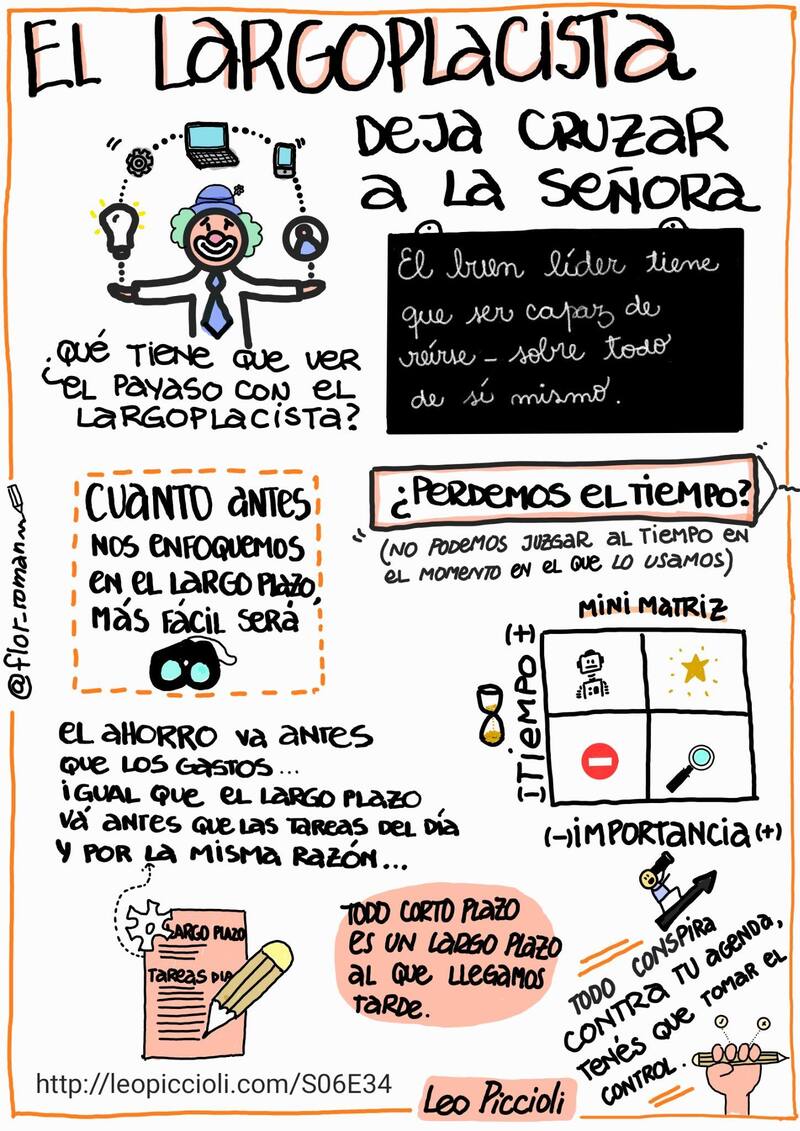 EL LARGOPLACISTA
DEJA CRUZAR
A LA SEÑORA
El buen líder tiene
que ser capaz de
reírse - sobre todo
de sí mismo.
¿QUÉ TIENE QUE VER
EL PAYASO CON EL
LARGOPLACISTA?
CUANTO ANTES
NOS ENFOQUEMOS
EN EL LARGO PLAZO,
MÁS FÁCIL SERÁ
¿PERDEMOS EL TIEMPO?
(NO PODEMOS JUZGAR AL TIEMPO EN
EL MOMENTO EN EL QUE LO USAMOS)
MINI MATRIZ
(-) TIEMPO (+)
(-) IMPORTANCIA (+)
@flor_roman
EL AHORRO VA ANTES
QUE LOS GASTOS...
IGUAL QUE EL LARGO PLAZO
VÁ ANTES QUE LAS TAREAS DEL DÍA
Y POR LA MISMA RAZÓN...
LARGO PLAZO
TAREAS DIA
TODO CORTO PLAZO
ES UN LARGO PLAZO
AL QUE LLEGAMOS
TARDE.
TODO CONSPIRA
CONTRA TU AGENDA,
TENÉS QUE TOMAR EL
CONTROL.
http://leopiccioli.com/S06E34
Leo Piccioli